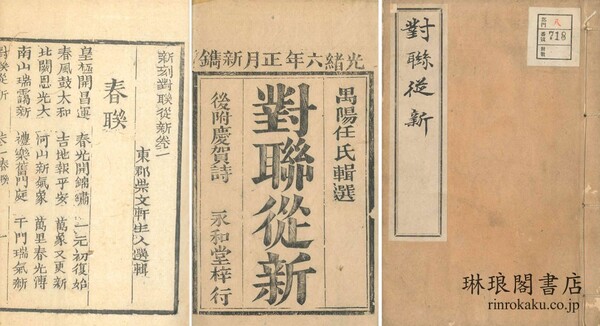 對聯從新
718
琳琅閣書店
rinrokaku.co.jp
光緒六年正月新鐫
禺陽任氏輯選
對聯從新
後附慶賀詩 永和堂梓行
新刻對聯從新卷一
東郡柴文軒主人選輯
春聯
皇極開昌運 春光開錦繡 一元初復始
春風鼓太和 吉地報平安 萬象又更新
北闕恩光大 河山新氣象 萬里春光溥
南山瑞靄新 禮樂舊門庭 千門瑞氣新